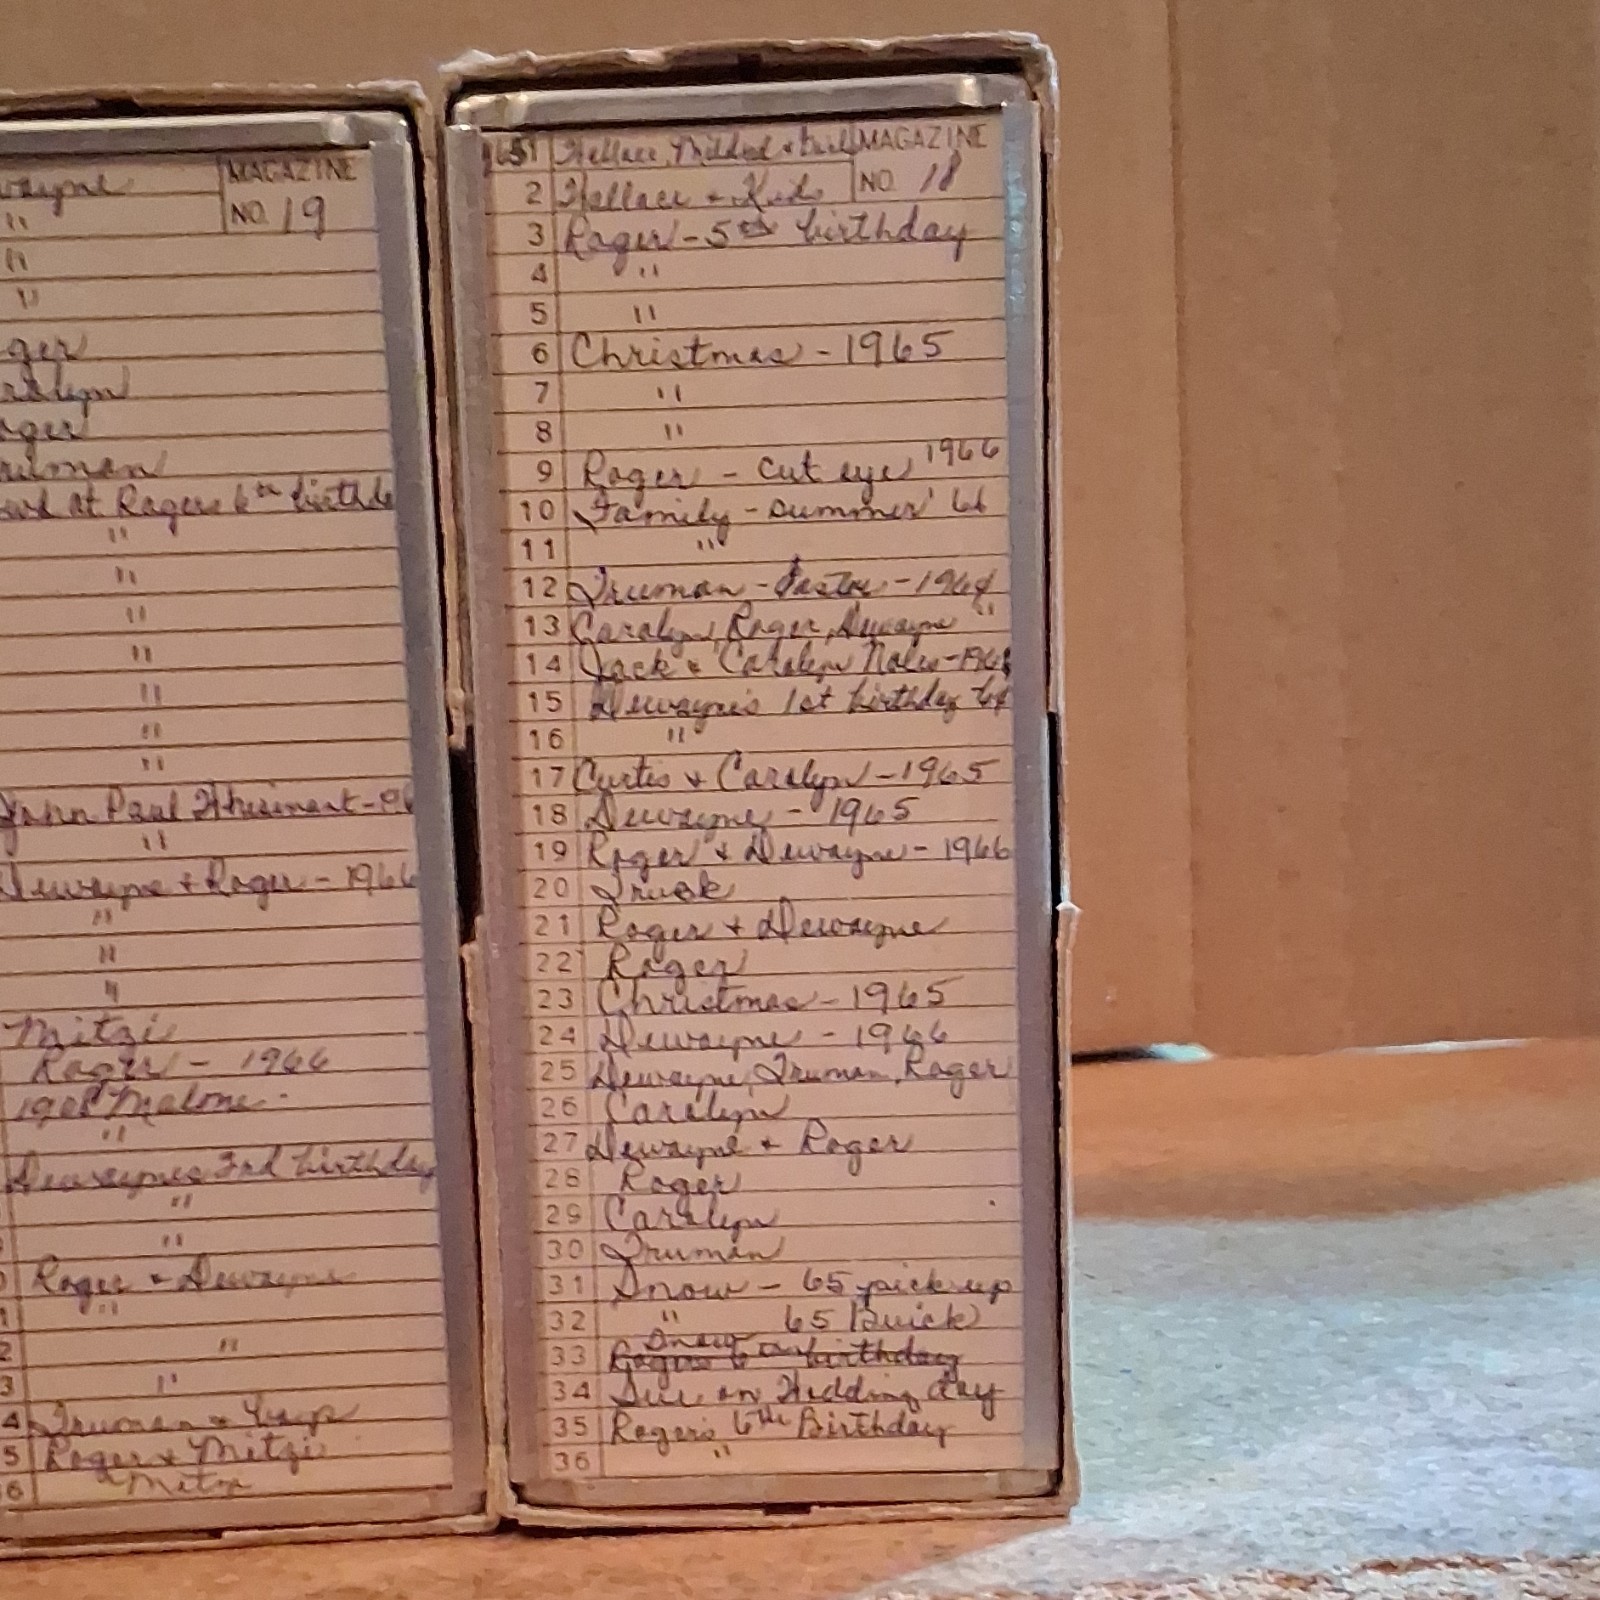 wayne
MAGAZINE
NO. 19
"
"
"
ger
rolyn
oger
ruman
at Rogers 6th birthda
"
"
"
"
"
"
"
John Paul
"
Dewayne + Roger - 1966
"
"
"
Mitzi
Roger - 1966
Malone
"
Dewaynes 3rd birthday
"
"
Roger + Dewayne
"
2 "
3 "
4 Truman +
5 Roger & Mitzi
6 Mitzi
1 Wallace, Mildred +
MAGAZINE
NO. 18
2 Wallace + Kids
3 Roger - 5th birthday
4 "
5 "
6 Christmas - 1965
7 "
8 "
9 Roger - cut eye 1966
10 Family - summer '66
11 "
12 Truman - Easter - 1964
13 Carolyn, Roger, Dewayne "
14 Jack & Carolyn
15 Dewayne's 1st birthday 64
16 "
17 Curtis & Carolyn - 1965
18 Dewayne - 1965
19 Roger & Dewayne - 1966
20 Truck
21 Roger + Dewayne
22 Roger
23 Christmas - 1965
24 Dewayne - 1966
25 Dewayne, Truman, Roger
26 Carolyn
27 Dewayne + Roger
28 Roger
29 Carolyn
30 Truman
31 Snow - 65 pickup
32 " 65 Buick
Snow
33 Rogers 6th birthday
34 Sue on Wedding day
35 Roger's 6th Birthday
36 "